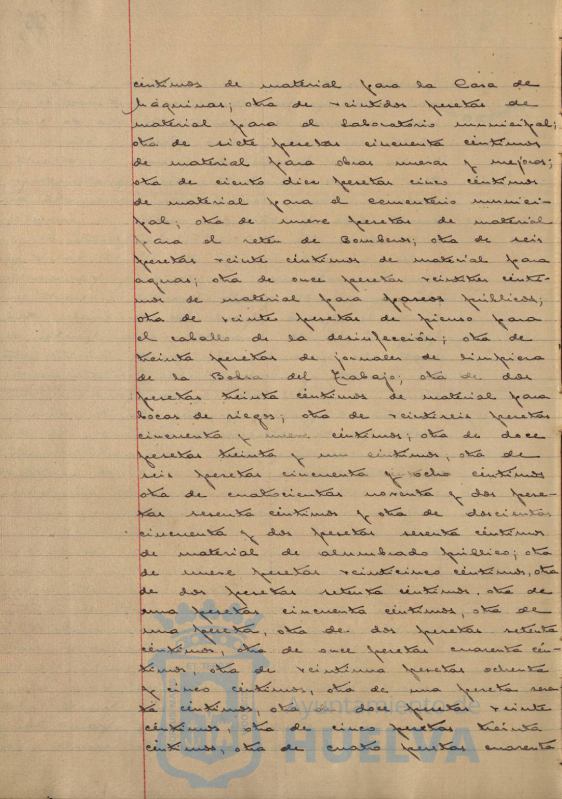 céntimos de material para la Casa de
Máquinas; otra de veintidos pesetas de
material para el laboratorio municipal;
otra de siete pesetas cincuenta céntimos
de material para obras nuevas y mejoras;
otra de ciento diez pesetas cinco céntimos
de material para el cementerio munici-
pal; otra de nueve pesetas de material
para el retén de Bomberos; otra de seis
pesetas veinte céntimos de material para
aguas; otra de once pesetas veintitres cénti-
mos de material para paseos públicos;
otra de veinte pesetas de pienso para
el caballo de la desinfección; otra de
treinta pesetas de jornales de limpieza
de la Bolsa del Trabajo; otra de dos
pesetas treinta céntimos de material para
bocas de riegos; otra de veintiseis pesetas
cincuenta y nueve céntimos; otra de doce
pesetas treinta y un céntimos, otra de
seis pesetas cincuenta y ocho céntimos
otra de cuatrocientas noventa y dos pese-
tas sesenta céntimos y otra de doscientas
cincuenta y dos pesetas sesenta céntimos
de material de alumbrado público; otra
de nueve pesetas veinticinco céntimos, otra
de dos pesetas setenta céntimos, otra de
una pesetas cincuenta céntimos, otra de
una peseta, otra de dos pesetas setenta
céntimos, otra de once pesetas cuarenta cén-
timos, otra de veintiuna pesetas ochenta
y cinco céntimos, otra de una peseta sesen-
ta céntimos otra de doce pesetas veinte
céntimos, otra de cinco pesetas treinta
céntimos, otra de cuatro pesetas cuarenta
Ayuntamiento de
HUELVA